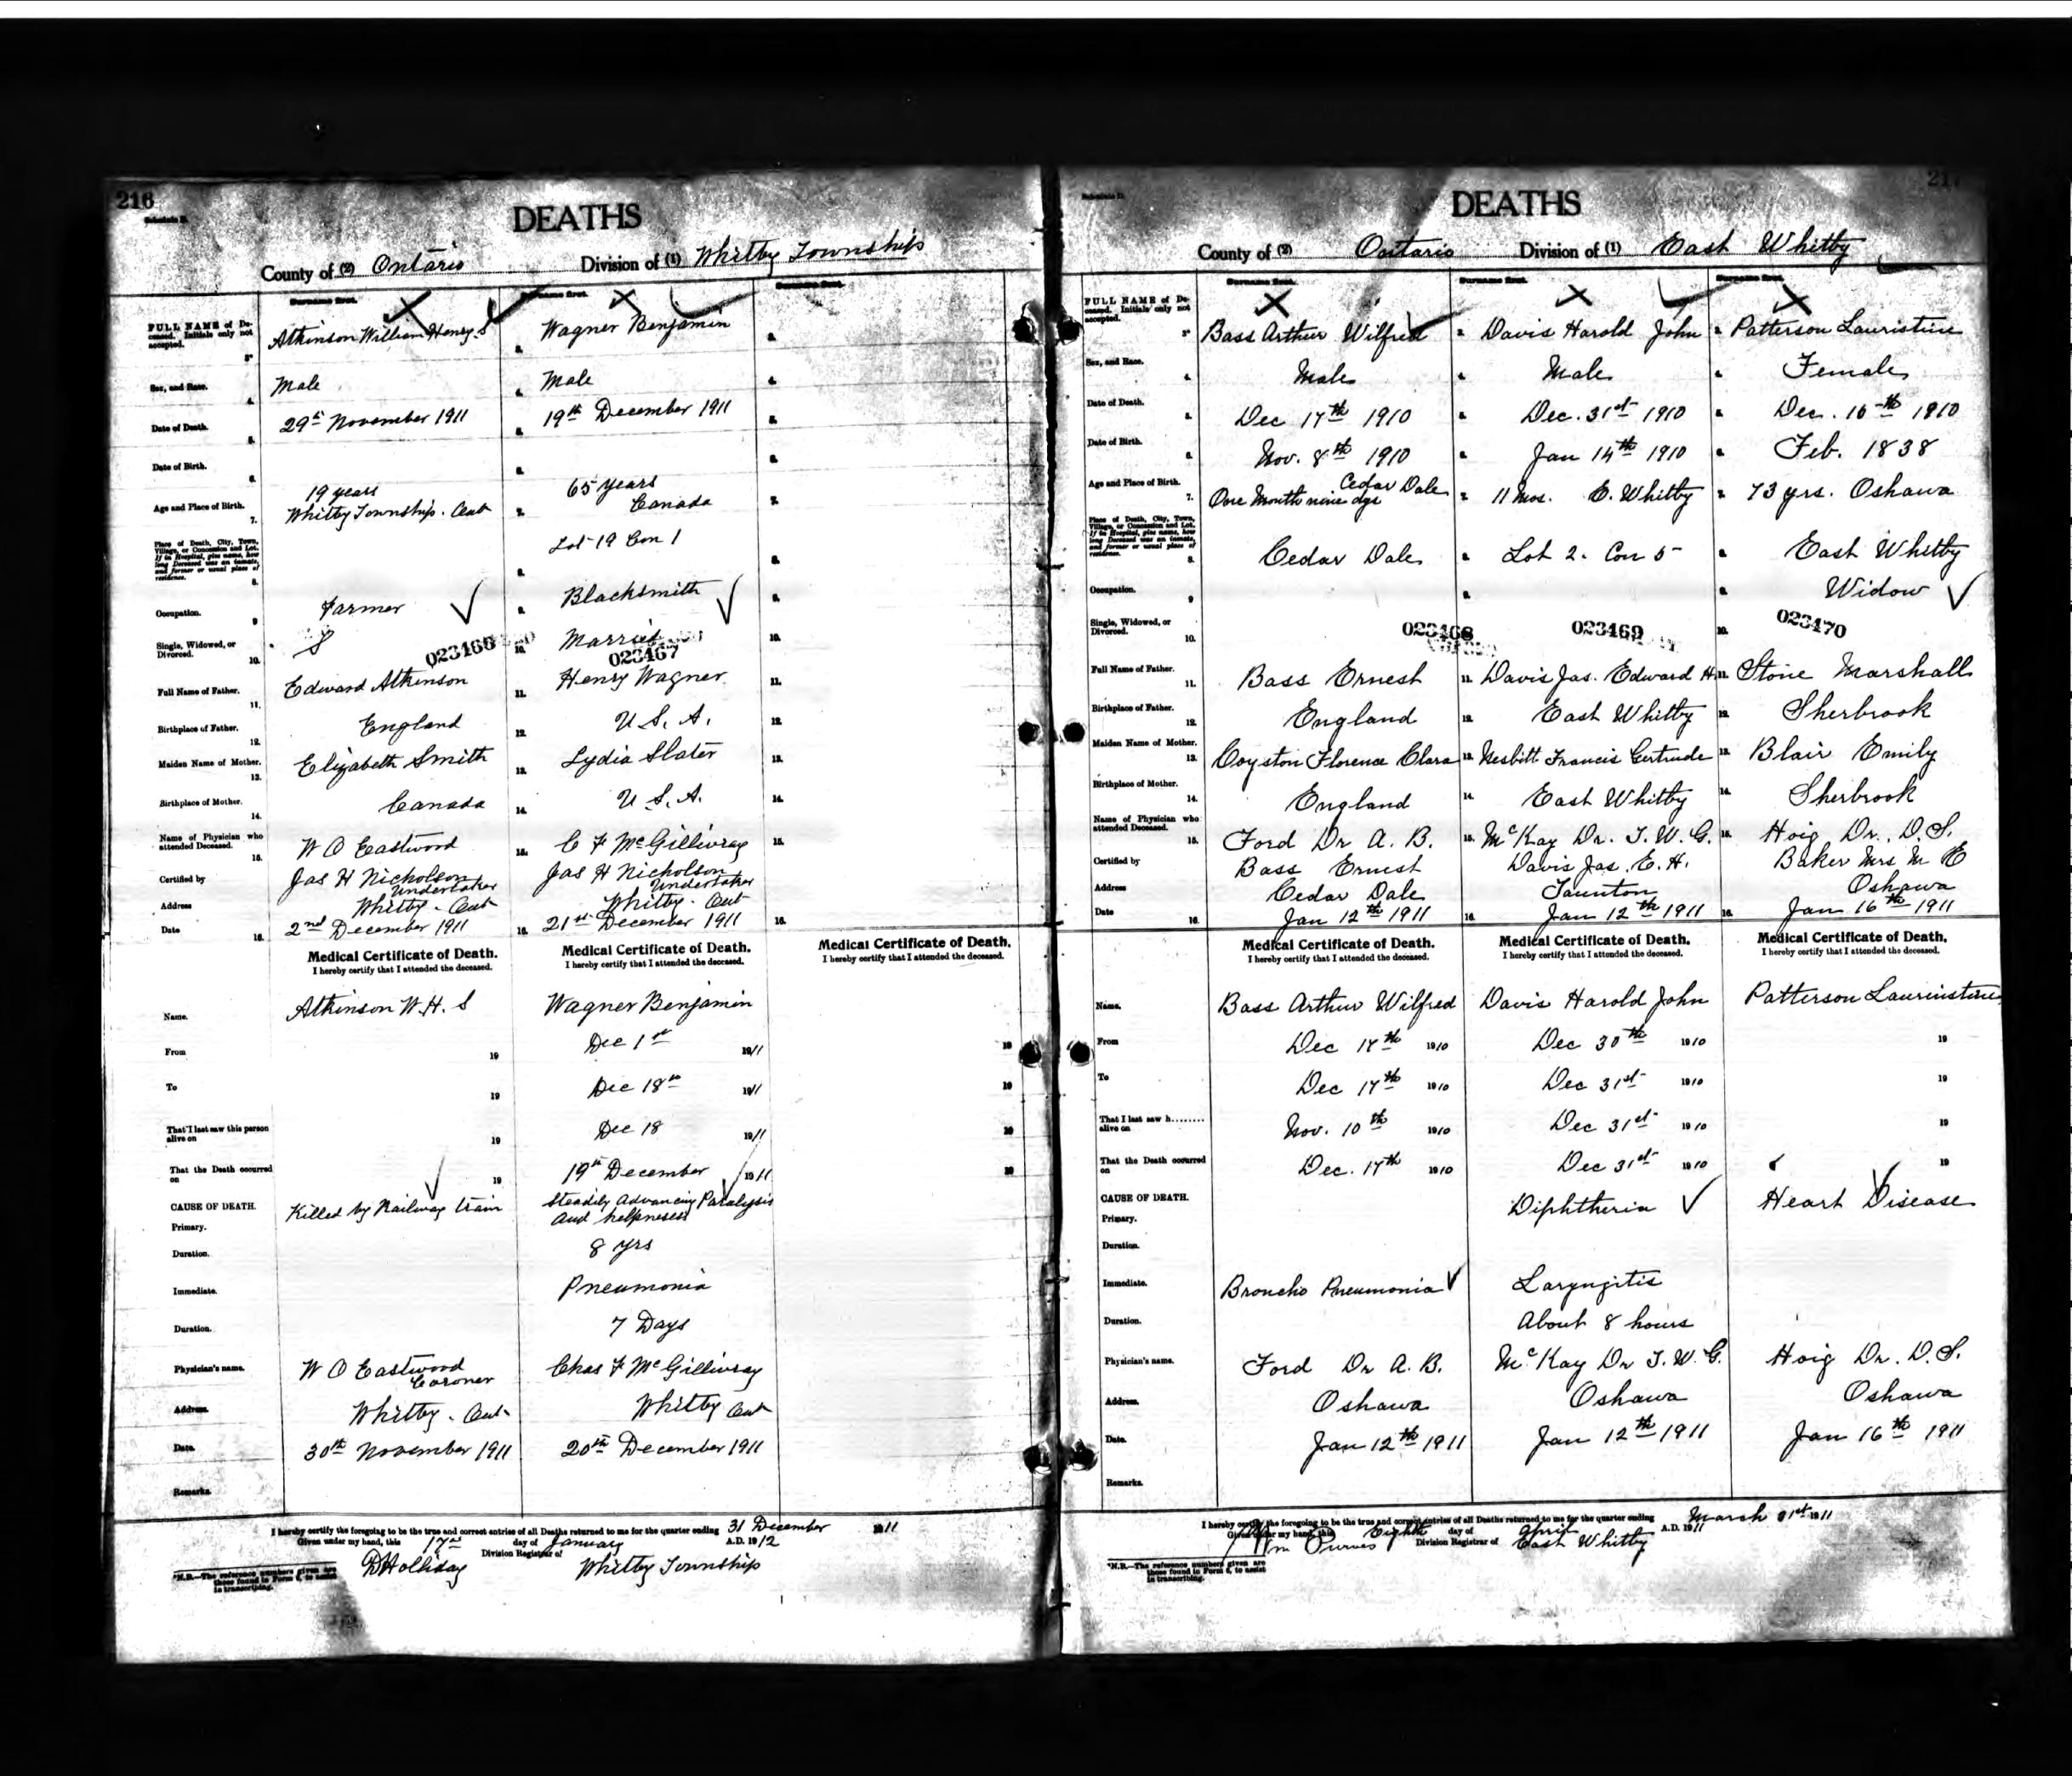 216
DEATHS
County of (2) Ontario Division of (1) Whitby Township
Surname first. Surname first. Surname first.
FULL NAME of Deceased. Initials only not accepted. 3. Atkinson William Henry S 3. Wagner Benjamin 3.
Sex, and Race. 4. Male 4. Male 4.
Date of Death. 5. 29th November 1911 5. 19th December 1911 5.
Date of Birth. 6. 6. 6.
Age and Place of Birth. 7. 19 years Whitby Township. Ont 7. 65 years Canada 7.
Place of Death, City, Town, Village, or Concession and Lot. If in Hospital, give name, how long Deceased was an inmate, and former or usual place of residence. 8. 8. Lot 19 Con 1 8.
Occupation. 9 Farmer 9. Blacksmith 9.
Single, Widowed, or Divorced. 10. S 023466 10. Married 023467 10.
Full Name of Father. 11. Edward Atkinson 11. Henry Wagner 11.
Birthplace of Father. 12. England 12. U.S.A. 12.
Maiden Name of Mother. 13. Elizabeth Smith 13. Lydia Slater 13.
Birthplace of Mother. 14. Canada 14. U.S.A. 14.
Name of Physician who attended Deceased. 15. W O Eastwood 15. C F McGillivray 15.
Certified by Jas H Nicholson Undertaker Jas H Nicholson Undertaker
Address Whitby - Ont Whitby - Ont
Date 16. 2nd December 1911 16. 21st December 1911 16.
Medical Certificate of Death. Medical Certificate of Death. Medical Certificate of Death.
I hereby certify that I attended the deceased. I hereby certify that I attended the deceased. I hereby certify that I attended the deceased.
Name. Atkinson W.H. S Wagner Benjamin
From 19 Dec 1st 1911 19
To 19 Dec 18th 1911 19
That I last saw this person alive on 19 Dec 18 1911 19
That the Death occurred on 19 19th December 1911 19
CAUSE OF DEATH. Primary. Killed by Railway train Steadily Advancing Paralysis and helpness
Duration. 8 yrs
Immediate. Pneumonia
Duration. 7 Days
Physician's name. W O Eastwood Coroner Chas F McGillivray
Address. Whitby - Ont Whitby Ont
Date. 30th November 1911 20th December 1911
Remarks.
I hereby certify the foregoing to be the true and correct entries of all Deaths returned to me for the quarter ending 31 December 1911
Given under my hand, this 17th day of January A.D. 1912
D Holliday Division Registrar of Whitby Township
*N.B.—The reference numbers given are those found in Form 6, to assist in transcribing.
217
DEATHS
County of (2) Ontario Division of (1) East Whitby
Surname first. Surname first. Surname first.
FULL NAME of Deceased. Initials only not accepted. 3. Bass Arthur Wilfred 3. Davis Harold John 3. Patterson Lauristine
Sex, and Race. 4. Male 4. Male 4. Female
Date of Death. 5. Dec 17th 1910 5. Dec. 31st 1910 5. Dec. 16th 1910
Date of Birth. 6. Nov. 8th 1910 6. Jan 14th 1910 6. Feb. 1838
Age and Place of Birth. 7. One Month nine dys Cedar Dale 7. 11 Mos. E. Whitby 7. 73 yrs. Oshawa
Place of Death, City, Town, Village, or Concession and Lot. If in Hospital, give name, how long Deceased was an inmate, and former or usual place of residence. 8. Cedar Dale 8. Lot 2. Con 5 8. East Whitby
Occupation. 9 9. 9. Widow
Single, Widowed, or Divorced. 10. 023468 023469 10. 023470
Full Name of Father. 11. Bass Ernest 11. Davis Jas. Edward H 11. Stone Marshall
Birthplace of Father. 12. England 12. East Whitby 12. Sherbrook
Maiden Name of Mother. 13. Coyston Florence Clara 13. Nesbitt Francis Gertrude 13. Blair Emily
Birthplace of Mother. 14. England 14. East Whitby 14. Sherbrook
Name of Physician who attended Deceased. 15. Ford Dr A. B. 15. McKay Dr. T. W. G. 15. Hoig Dr. D.S.
Certified by Bass Ernest Davis Jas. E. H. Baker Mrs M E
Address Cedar Dale Taunton Oshawa
Date 16. Jan 12th 1911 16. Jan 12th 1911 16. Jan 16th 1911
Medical Certificate of Death. Medical Certificate of Death. Medical Certificate of Death.
I hereby certify that I attended the deceased. I hereby certify that I attended the deceased. I hereby certify that I attended the deceased.
Name. Bass Arthur Wilfred Davis Harold John Patterson Laurinstine
From Dec 1910 Dec 30th 1910 19
To Dec 17th 1910 Dec 31st 1910 19
That I last saw h........ alive on Nov. 10th 1910 Dec 31st 1910 19
That the Death occurred on Dec. 17th 1910 Dec 31st 1910 19
CAUSE OF DEATH. Primary. Diphtheria Heart Disease
Duration.
Immediate. Broncho Pneumonia Laryngitis
Duration. About 8 hours
Physician's name. Ford Dr A. B. McKay Dr T. W. G. Hoig Dr. D.S.
Address. Oshawa Oshawa Oshawa
Date. Jan 12th 1911 Jan 12th 1911 Jan 16th 1911
Remarks.
I hereby certify the foregoing to be the true and correct entries of all Deaths returned to me for the quarter ending March 31st 1911
Given under my hand, this Eighth day of April A.D. 1911
Wm Purves Division Registrar of East Whitby
*N.B.—The reference numbers given are those found in Form 6, to assist in transcribing.